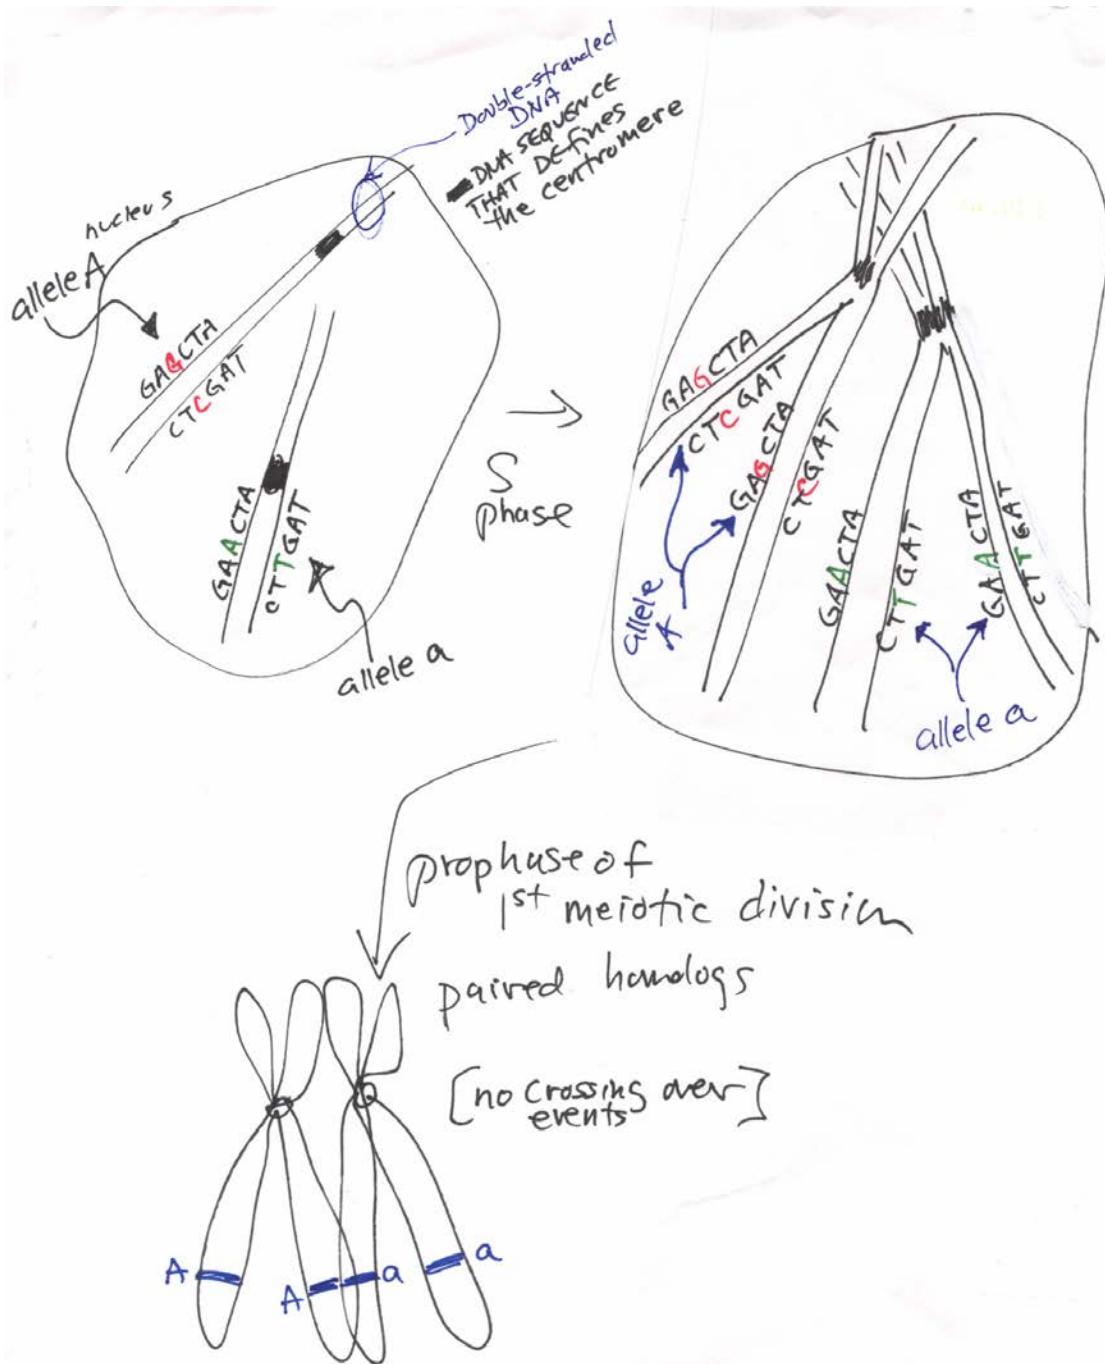 Double-stranded
DNA
DNA SEQUENCE
THAT DEfines
the centromere
nucleus
allele A
GAGCTA
CTCGAT
GAACTA
CTTGAT
allele a
S
phase
GAGCTA
CTCGAT
GAGCTA
CTCGAT
allele
A
GAACTA
CTTGAT
GAACTA
CTTGAT
allele a
prophase of
1st meiotic division
paired homologs
[no crossing over]
events
A
A
a
a